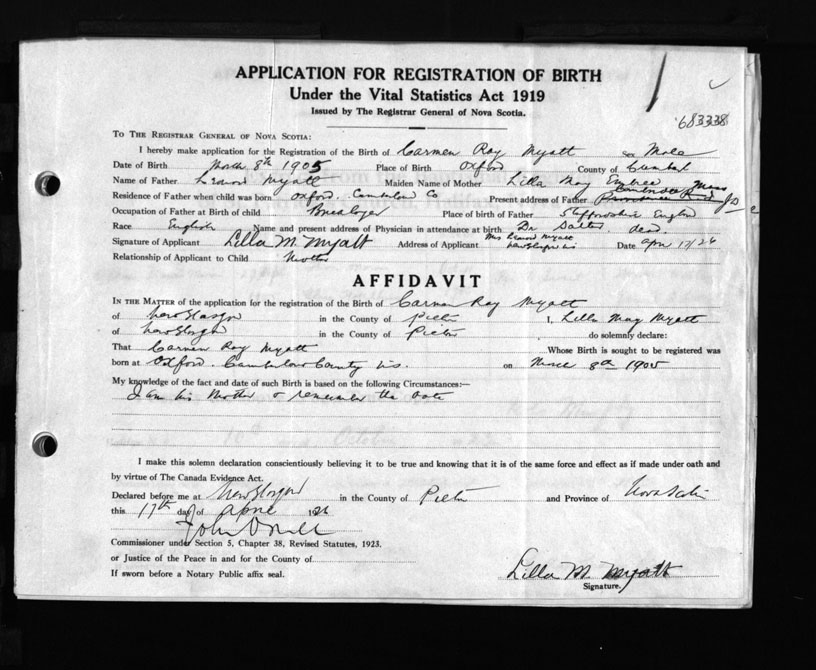 APPLICATION FOR REGISTRATION OF BIRTH
Under the Vital Statistics Act 1919
Issued by The Registrar General of Nova Scotia.
683338
TO THE REGISTRAR GENERAL OF NOVA SCOTIA:
I hereby make application for the Registration of the Birth of Carmen Roy Myatt Male
Date of Birth March 8th 1905 Place of Birth Oxford County of
Name of Father Myatt Maiden Name of Mother Lilla May
Residence of Father when child was born Oxford, Co Present address of Father
Occupation of Father at Birth of child Place of birth of Father Staffordshire
Race English Name and present address of Physician in attendance at birth Dr dead.
Mrs Myatt
Signature of Applicant Lilla M. Myatt Address of Applicant Date Apr 17/26
Relationship of Applicant to Child Mother
AFFIDAVIT
IN THE MATTER of the application for the registration of the Birth of Carmen Roy Myatt
of New Glasgow in the County of Pictou I, Lilla May Myatt
of New Glasgow in the County of Pictou do solemnly declare:
That Carmen Roy Myatt Whose Birth is sought to be registered was
born at Oxford. County on 8th 1905
My knowledge of the fact and date of such Birth is based on the following Circumstances:—
I am his Mother & remember the date
I make this solemn declaration conscientiously believing it to be true and knowing that it is of the same force and effect as if made under oath and
by virtue of The Canada Evidence Act.
Declared before me at New Glasgow in the County of Pictou and Province of Nova Scotia
this 17th day of April 1926
Commissioner under Section 5, Chapter 38, Revised Statutes, 1923.
or Justice of the Peace in and for the County of
If sworn before a Notary Public affix seal.
Lilla M. Myatt
Signature.